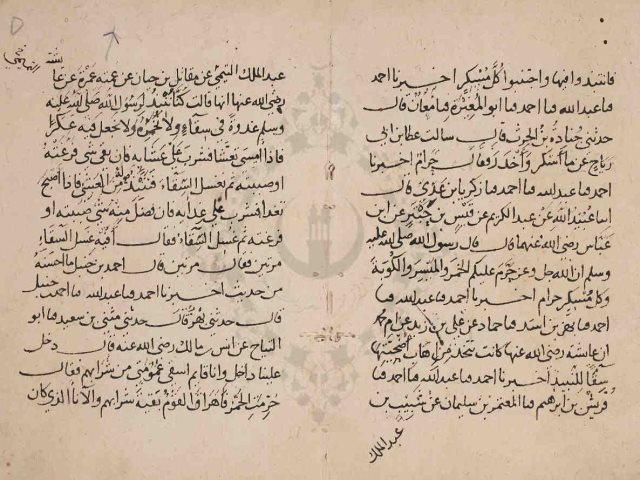 فانتبذوا فيها واجتنبوا كل مسكر اخبرنا احمد
ما عبد الله ما احمد ما ابو المغيرة ما معان قال
حدثني جنادة بن الحرث قال سالت عطا بن ابي
رباح عن ما اسكر فقال حرام اخبرنا
احمد ما عبد الله ما احمد ما زكريا بن عدي قال
اما عبيد الله عن عبد الكريم عن قيس بن حبتر عن ابن
عباس رضي الله عنهما قال قال رسول الله صلى الله عليه
وسلم ان الله جل وعز حرم عليكم الخمر والميسر والكوبة
وكل مسكر حرام اخبرنا احمد ما عبد الله ما
احمد ما بهز بن اسد ما حماد عن علي بن زيد عن ام محمد
ان عائشة رضي الله عنها كانت تتخذ من اهاب اضحيتها
سقا للنبيذ اخبرنا احمد ما عبد الله ما احمد ما
قريش بن ابرهيم ما المعتمر بن سليمان عن شبيب بن
عبد الملك
عبد الملك التيمي عن مقاتل بن حيان عن عمته عمرة عن عا
رضي الله عنها انها قالت كنا ننبذ لرسول الله صلى الله عليه
وسلم غدوة في سقاء ولا نخمره ولا نجعل فيه عكرا
فاذا امسى تعشا فشرب على عشايه فان بقي شي فرغته
او صببته ثم نغسل السقاء فننبذ من العشي فاذا اصبح
تغدا فشرب على غدايه فان فضل منه شي صببته او
فرغته ثم نغسل السقاء فقال افيه غسل السقاء
مرتين فقال مرتين قال احمد بن حنبل ما احسنه
من حديث اخبرنا احمد ما عبد الله ما احمد بن حنبل
قال حدثني بهز قال حدثني مثنى بن سعيد ما ابو
التياح عن انس بن مالك رضي الله عنه قال دخل
علينا داخل وانا قايم اسقي عمومتي من شرابهم فقال
حرمت الخمر فاهراق القوم بقية شرابهم والاناء الذي كان